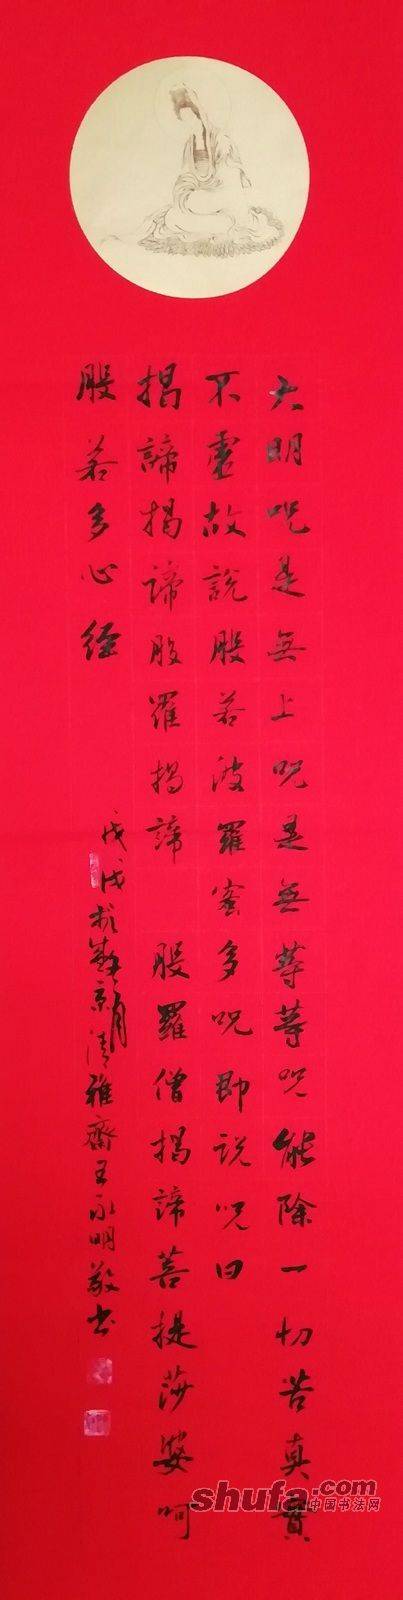 大明咒是無上咒是無等等咒能除一切苦真實
不虛故說般若波羅蜜多咒即説咒曰
揭諦揭諦般羅揭諦 般羅僧揭諦菩提莎婆呵
般若多心經
戊戌於
京清雅齋王永明敬书
shufa.com
中国书法网